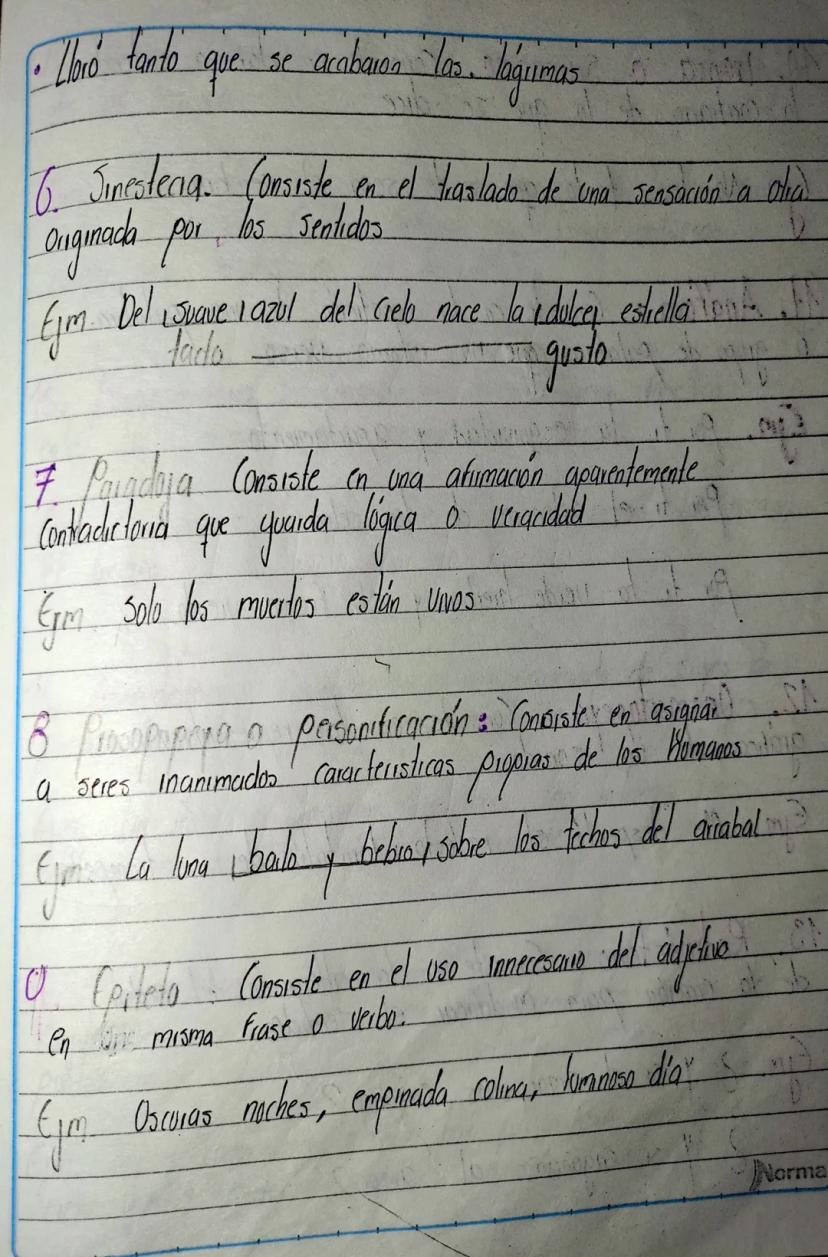 • Lloró tanto que se acabaron las lágrimas
6. Sinestecia. Consiste en el traslado de una sensación a otra
originada por los sentidos
Ejm Del suave azul del cielo nace la dulce estrella
tacto gusto
7. Paradoja Consiste en una afirmación aparentemente
contradictoria que guarda lógica o veracidad
Ejm solo los muertos están vivos
8 Prosopopeya o personificación: Consiste en asignar
a seres inanimados características propias de los Humanos
Ejm La luna bailo y bebio sobre los techos del arrabal
9 Epíteto: Consiste en el uso innecesario del adjetivo
en una misma frase o verbo.
Ejm Oscuras noches, empinada colina, lumnoso día
Norma